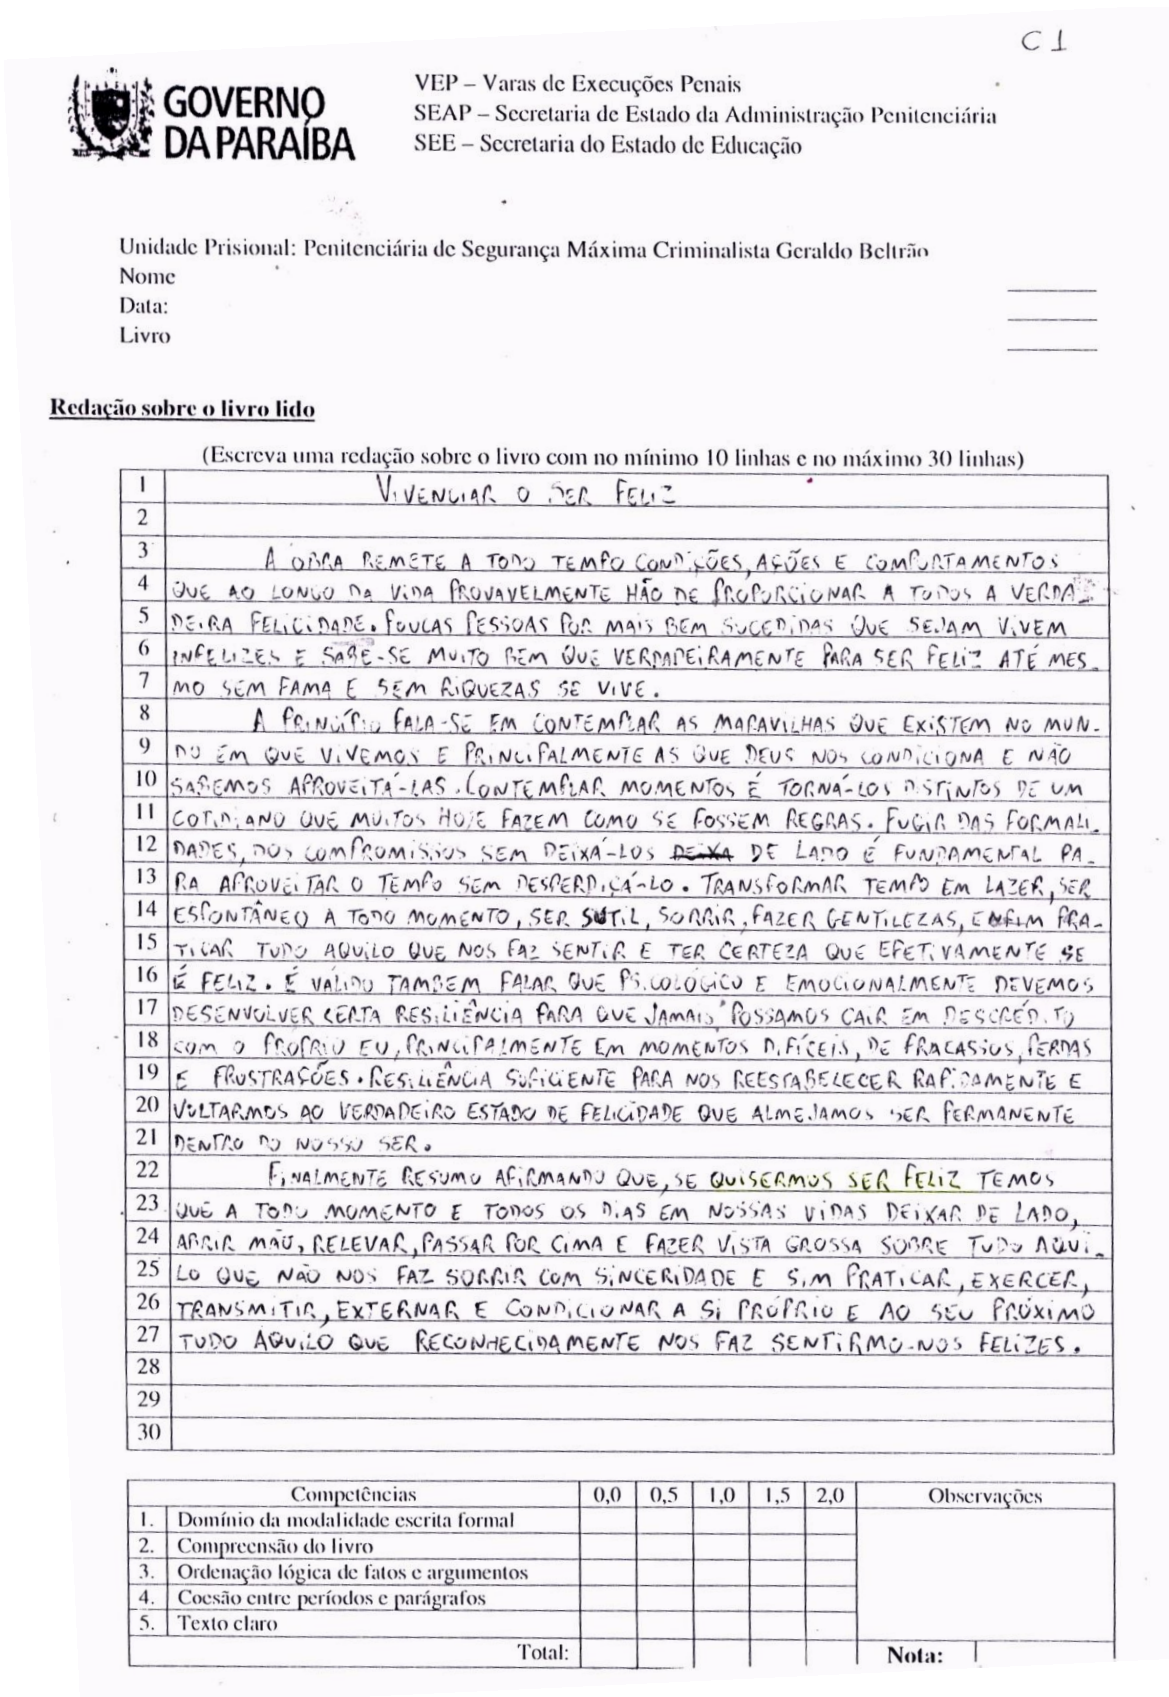 C 1
GOVERNO
DA PARAÍBA
VEP – Varas de Execuções Penais
SEAP – Secretaria de Estado da Administração Penitenciária
SEE – Secretaria do Estado de Educação
Unidade Prisional: Penitenciária de Segurança Máxima Criminalista Geraldo Beltrão
Nome
Data:
Livro
Redação sobre o livro lido
(Escreva uma redação sobre o livro com no mínimo 10 linhas e no máximo 30 linhas)
1 VIVENCIAR O SER FELIZ
2
3 A OBRA REMETE A TODO TEMPO CONDIÇÕES, AÇÕES E COMPORTAMENTOS
4 QUE AO LONGO DA VIDA PROVAVELMENTE HÃO DE PROPORCIONAR A TODOS A VERDA-
5 DEIRA FELICIDADE. POUCAS PESSOAS POR MAIS BEM SUCEDIDAS QUE SEJAM VIVEM
6 INFELIZES E SABE-SE MUITO BEM QUE VERDADEIRAMENTE PARA SER FELIZ ATÉ MES-
7 MO SEM FAMA E SEM RIQUEZAS SE VIVE.
8 A PRINCÍPIO FALA-SE EM CONTEMPLAR AS MARAVILHAS QUE EXISTEM NO MUN-
9 DO EM QUE VIVEMOS E PRINCIPALMENTE AS QUE DEUS NOS CONDICIONA E NÃO
10 SABEMOS APROVEITÁ-LAS. CONTEMPLAR MOMENTOS É TORNÁ-LOS DISTINTOS DE UM
11 COTIDIANO QUE MUITOS HOJE FAZEM COMO SE FOSSEM REGRAS. FUGIR DAS FORMALI-
12 DADES, DOS COMPROMISSOS SEM DEIXÁ-LOS DEIXA DE LADO É FUNDAMENTAL PA-
13 RA APROVEITAR O TEMPO SEM DESPERDIÇÁ-LO. TRANSFORMAR TEMPO EM LAZER, SER
14 ESPONTÂNEO A TODO MOMENTO, SER SUTIL, SORRIR, FAZER GENTILEZAS, ENFIM PRA-
15 TICAR TUDO AQUILO QUE NOS FAZ SENTIR E TER CERTEZA QUE EFETIVAMENTE SE
16 É FELIZ. É VÁLIDO TAMBEM FALAR QUE PSICOLÓGICO E EMOCIONALMENTE DEVEMOS
17 DESENVOLVER CERTA RESILIÊNCIA PARA QUE JAMAIS POSSAMOS CAIR EM DESCRÉDITO
18 COM O PRÓPRIO EU, PRINCIPALMENTE EM MOMENTOS DIFÍCEIS, DE FRACASSOS, PERDAS
19 E FRUSTRAÇÕES. RESILIÊNCIA SUFICIENTE PARA NOS REESTABELECER RAPIDAMENTE E
20 VOLTARMOS AO VERDADEIRO ESTADO DE FELICIDADE QUE ALMEJAMOS SER PERMANENTE
21 DENTRO DO NOSSO SER.
22 FINALMENTE RESUMO AFIRMANDO QUE, SE QUISERMOS SER FELIZ TEMOS
23 QUE A TODO MOMENTO E TODOS OS DIAS EM NOSSAS VIDAS DEIXAR DE LADO,
24 ABRIR MÃO, RELEVAR, PASSAR POR CIMA E FAZER VISTA GROSSA SOBRE TUDO AQUI-
25 LO QUE NÃO NOS FAZ SORRIR COM SINCERIDADE E SIM PRATICAR, EXERCER,
26 TRANSMITIR, EXTERNAR E CONDICIONAR A SI PRÓPRIO E AO SEU PRÓXIMO
27 TUDO AQUILO QUE RECONHECIDAMENTE NOS FAZ SENTIRMO-NOS FELIZES.
28
29
30
Competências 0,0 0,5 1,0 1,5 2,0 Observações
1. Domínio da modalidade escrita formal
2. Compreensão do livro
3. Ordenação lógica de fatos e argumentos
4. Coesão entre períodos e parágrafos
5. Texto claro
Total: Nota: